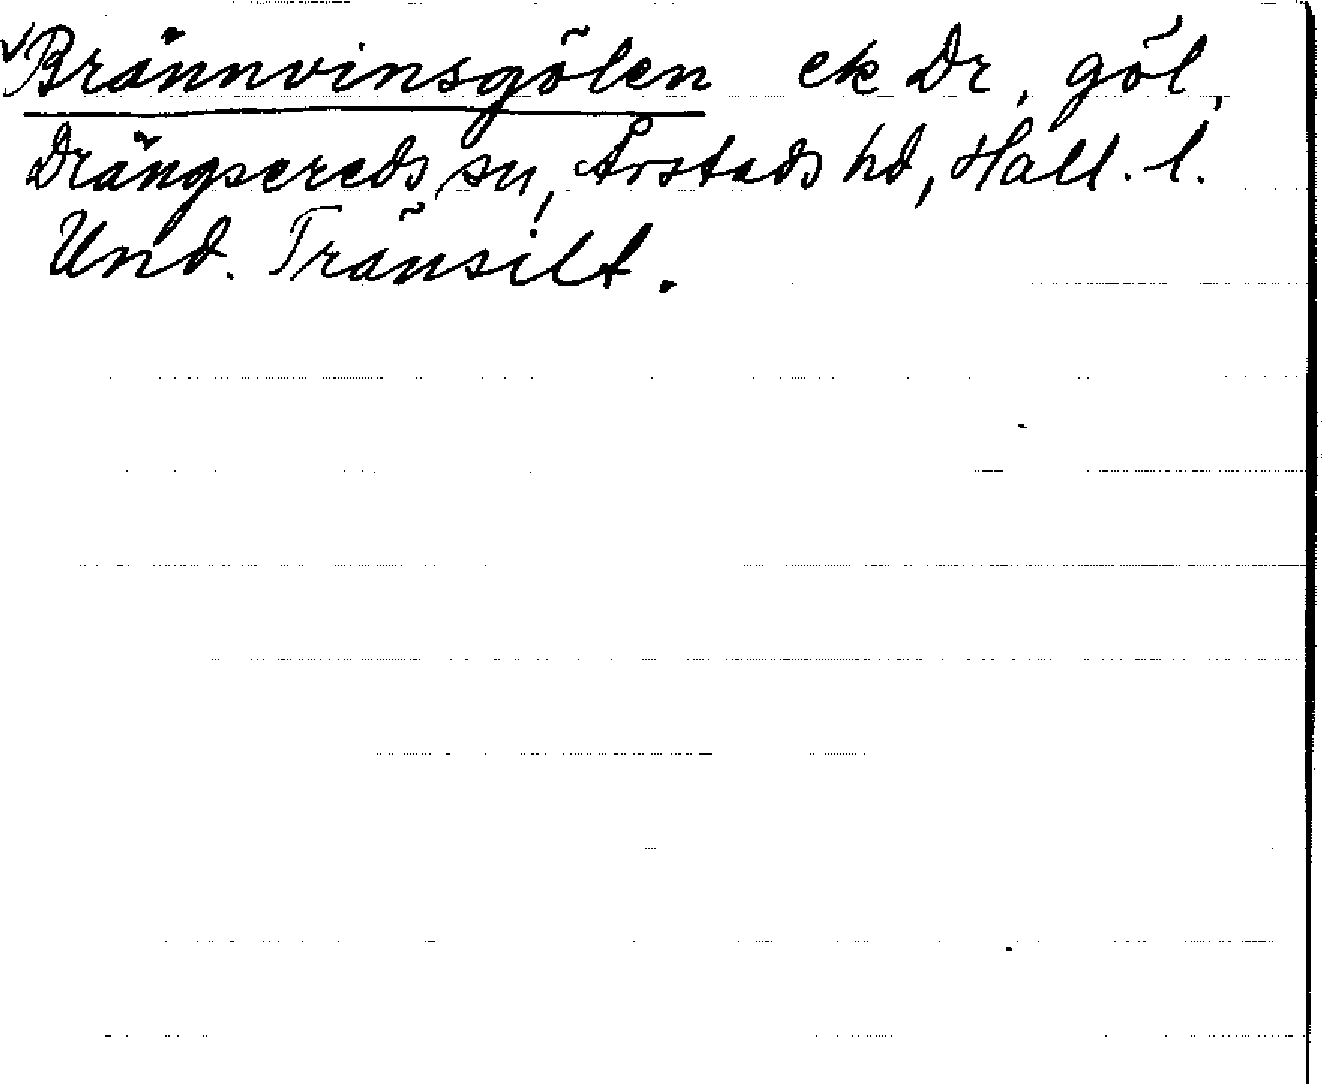 Brännvinsgölen ek Dr, göl,
Drängsereds sn, Årstads hd, Hall. l.
Und. Tränsilt.